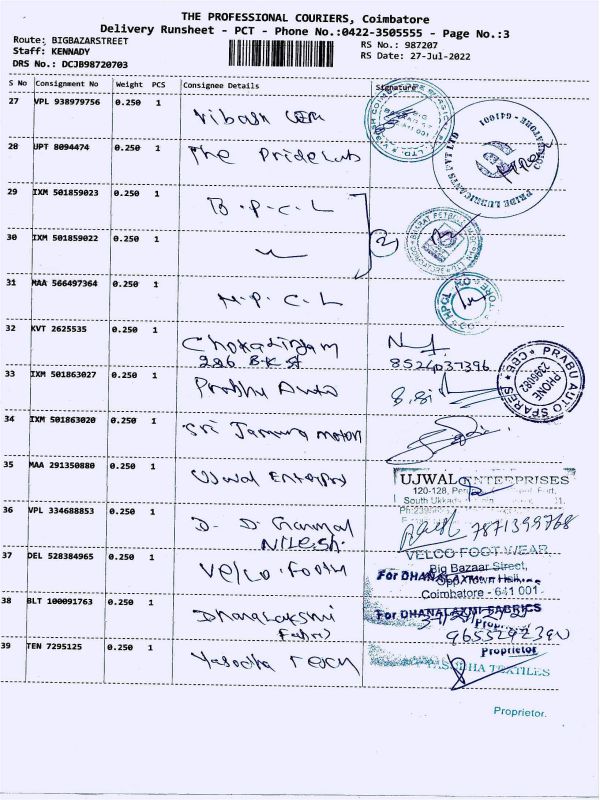 THE PROFESSIONAL COURIERS, Coimbatore
Delivery Runsheet - PCT - Phone No.:0422-3505555 - Page No.:3
Route: BIGBAZARSTREET
RS No.: 987207
Staff: KENNADY
RS Date: 27-Jul-2022
DRS No.: DCJB98720703
S No Consignment No Weight PCS Consignee Details Signature
27 VPL 938979756 0.250 1
28 UPT 8094474 0.250 1 The Pride Lub
PRIDE LUBRICANTS
29 IXM 501859023 0.250 1 B.P.C.L
30 IXM 501859022 0.250 1 2
BHARAT PETROLEUM
31 MAA 566497364 0.250 1 H.P.C.L
HPCL
32 KVT 2625535 0.250 1 Chokalingam
226 B.K St 8524037396
33 IXM 501863027 0.250 1 Prabhu Auto
PRABU AUTO SPARES CBE
PHONE 2396082
34 IXM 501863020 0.250 1 Sri Jamuna motors
35 MAA 291350880 0.250 1 Ujwal Enterprs
UJWAL ENTERPRISES
120-128,
South Ukkadam
36 VPL 334688853 0.250 1 D. D Ganmal
Nilesh. 7871399768
37 DEL 528384965 0.250 1 Velco. Footw
VELCO FOOT WEAR
Big Bazaar Street,
Opp. Town Hall,
For DHANALAXMI
Coimbatore - 641 001
38 BLT 100091763 0.250 1 Dhanalakshmi
Fabrics
For DHANALAXMI FABRICS
Proprietor
39 TEN 7295125 0.250 1 Yasodha Texn
YASODHA TEXTILES
Proprietor.